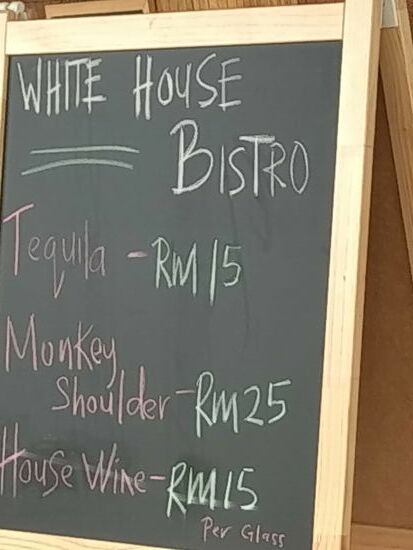 WHITE HOUSE
BISTRO
Tequila - RM 15
Monkey
Shoulder - RM 25
House Wine - RM 15
Per Glass